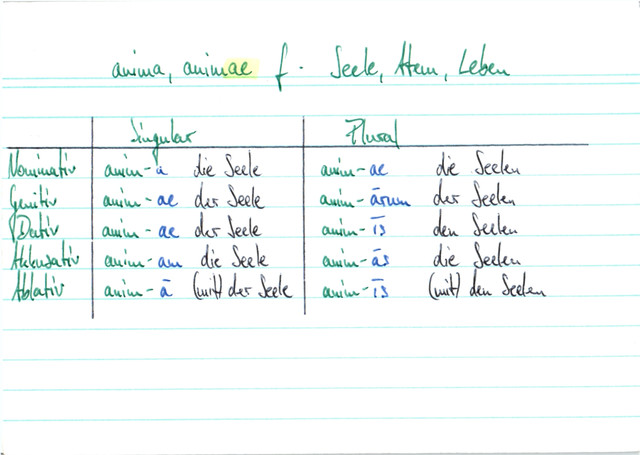 anima, animae f. Seele, Atem, Leben
Singular Plural
Nominativ anim-a die Seele anim-ae die Seelen
Genitiv anim-ae der Seele anim-ārum der Seelen
Dativ anim-ae der Seele anim-īs den Seelen
Akkusativ anim-am die Seele anim-ās die Seelen
Ablativ anim-ā (mit) der Seele anim-īs (mit) den Seelen